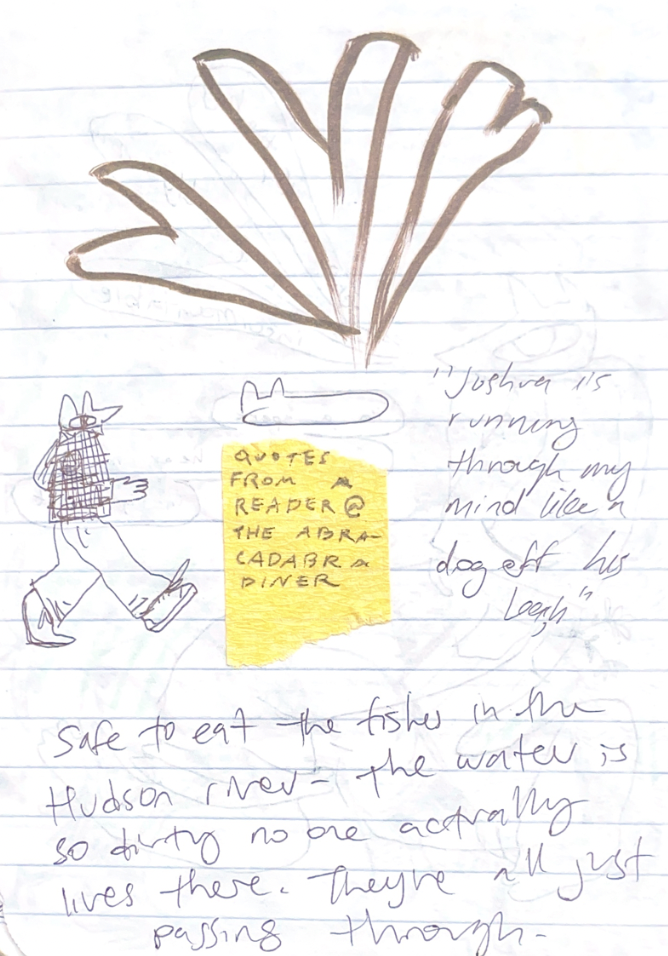 "Joshua is
running
through my
mind like a
dog off his
leash"
QUOTES
FROM A
READER @
THE ABRA-
CADABRA
DINER
Safe to eat the fishes in the
Hudson river - the water is
so dirty no one actually
lives there. They're all just
passing through.